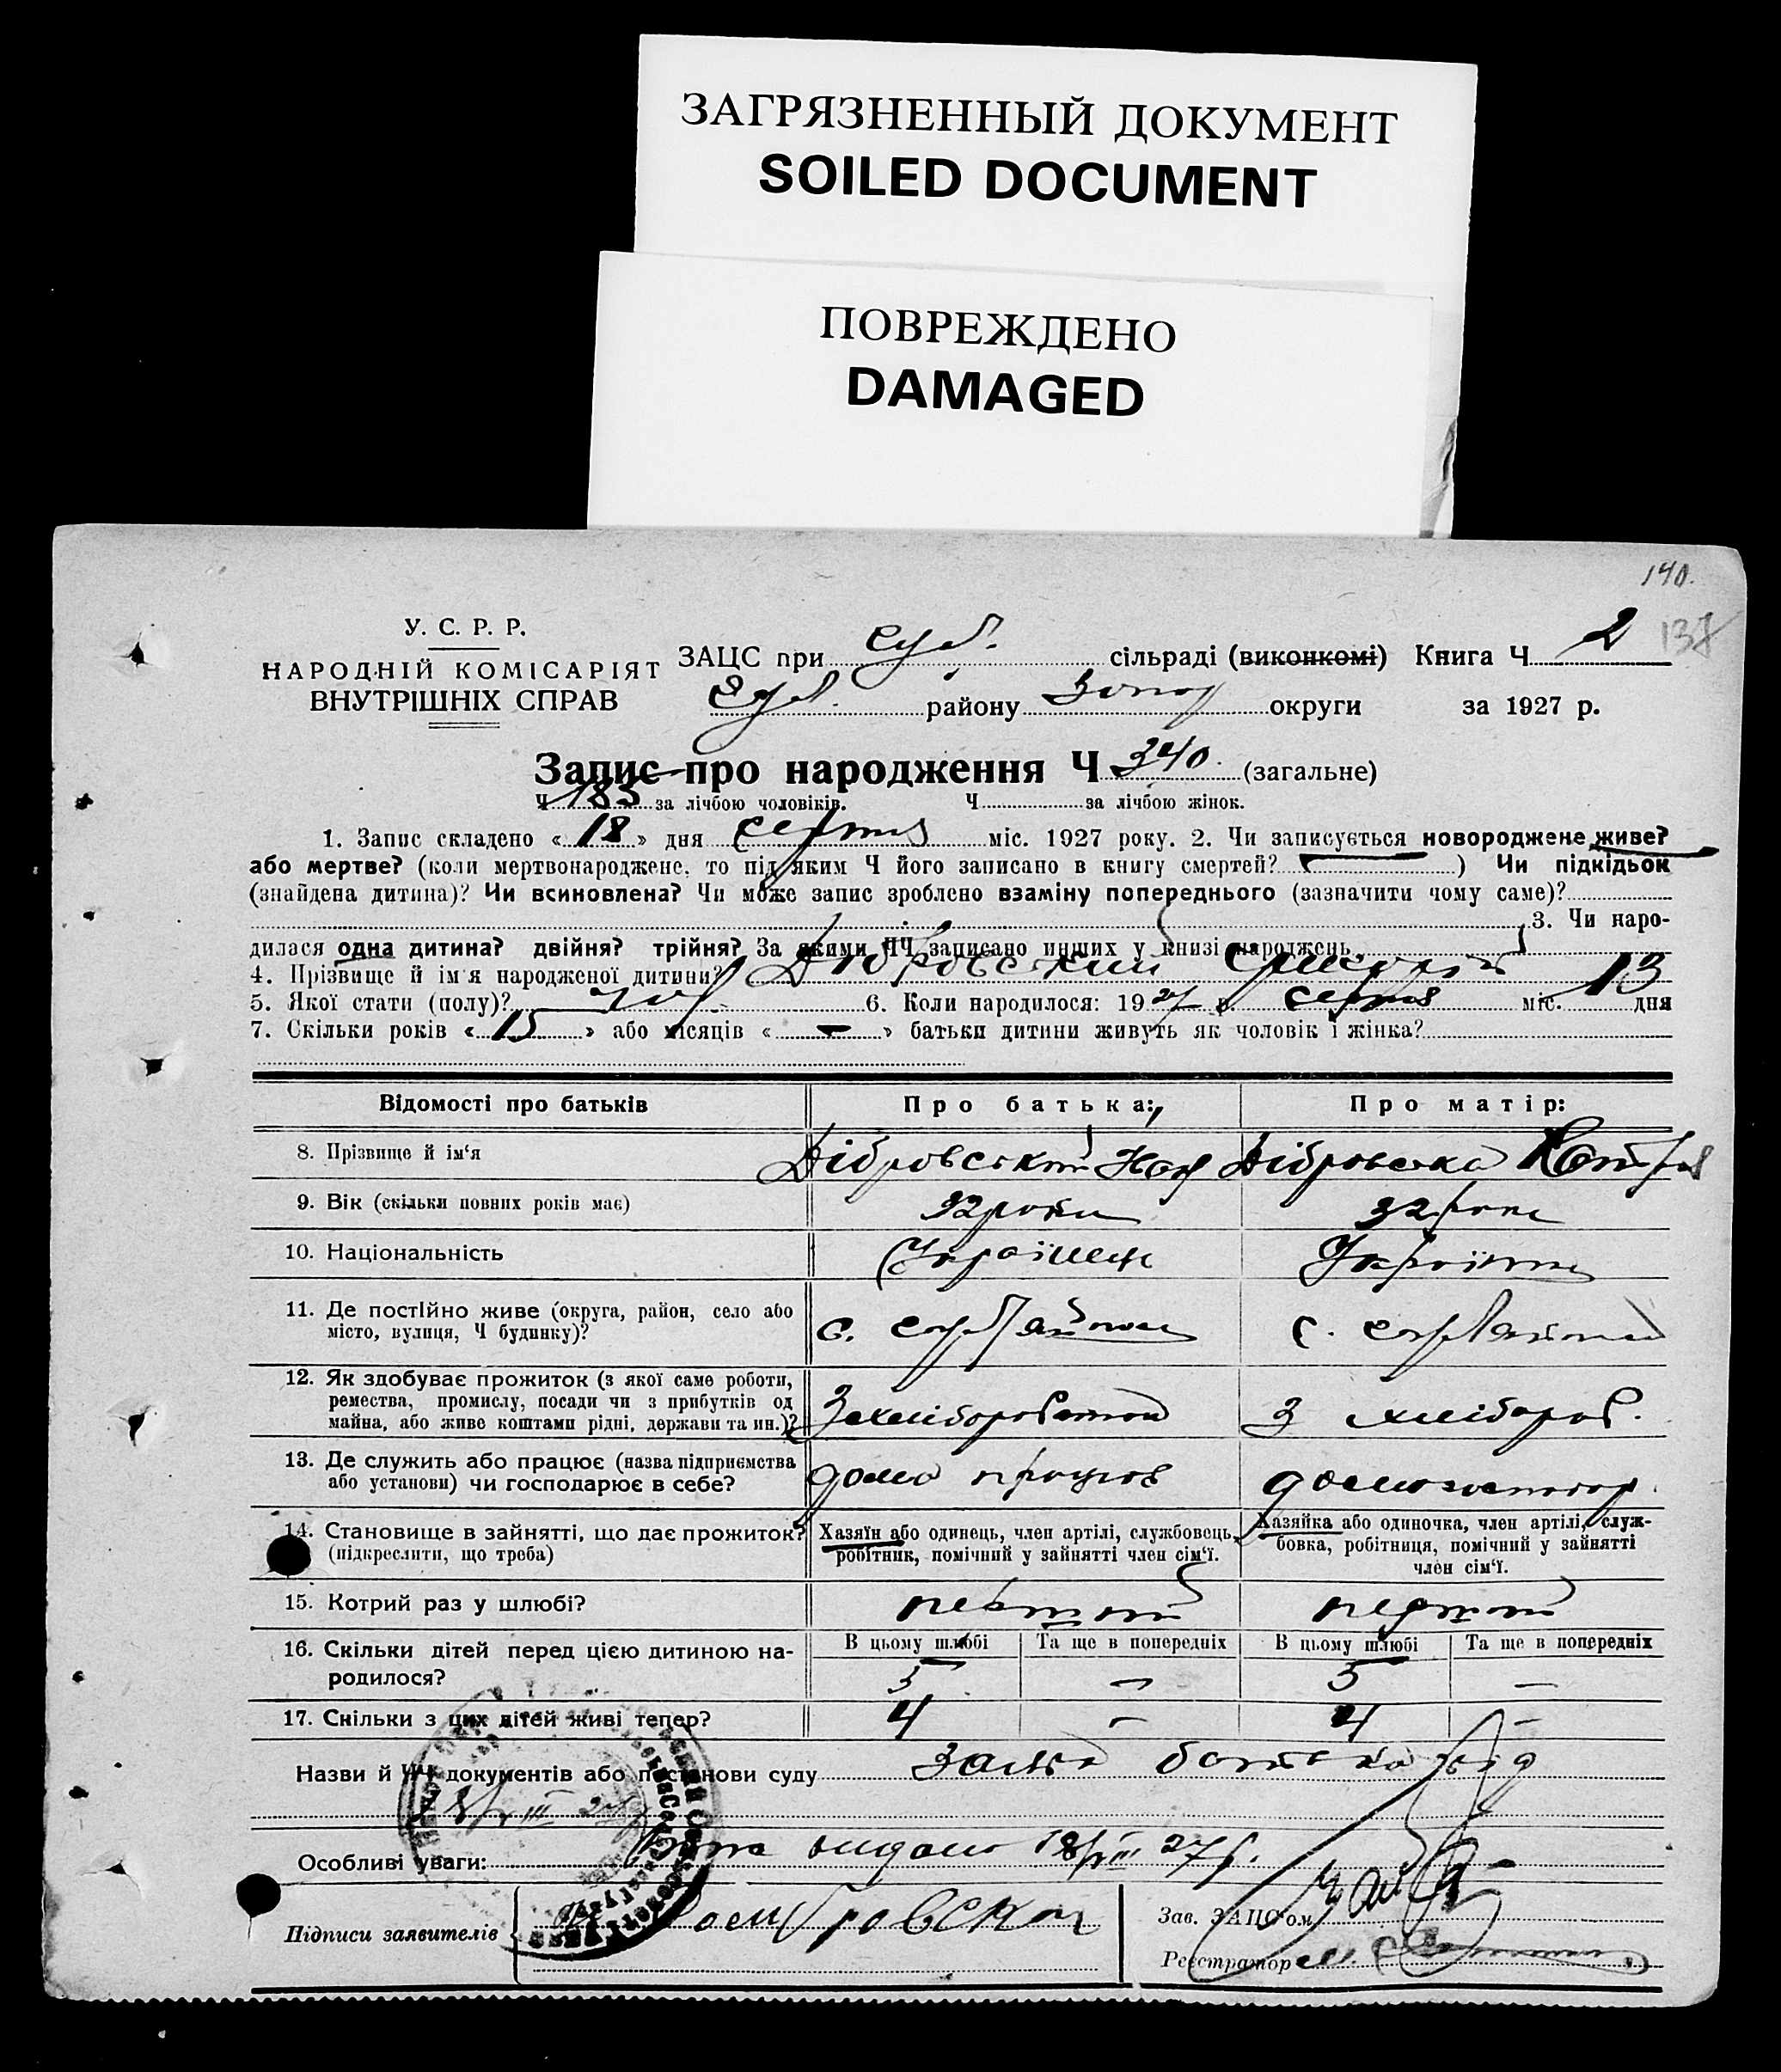 ЗАГРЯЗНЕННЫЙ ДОКУМЕНТ
SOILED DOCUMENT
ПОВРЕЖДЕНО
DAMAGED
140.
138
У. С. Р. Р.
НАРОДНІЙ КОМІСАРІЯТ
ВНУТРІШНІХ СПРАВ
ЗАЦС при сільраді (виконкомі) Книга Ч 2
району округи за 1927 р.
Запис про народження Ч 340. (загальне)
Ч 183 за лічбою чоловіків. Ч за лічбою жінок.
1. Запис складено « 18 » дня серпня міс. 1927 року. 2. Чи записується новороджене живе?
або мертве? (коли мертвонароджене, то під яким Ч його записано в книгу смертей? ) Чи підкідьок
(знайдена дитина)? Чи всиновлена? Чи може запис зроблено взаміну попереднього (зазначити чому саме)?
3. Чи наро-
дилася одна дитина? двійня? трійня? За якими ЧЧ записано инших у книзі народжень
4. Прізвище й ім'я народженої дитини? Дібровський Григорій
5. Якої стати (полу)? чол 6. Коли народилося: 1927 р. серпня міс. 13 дня
7. Скільки років « 15 » або місяців « — » батьки дитини живуть як чоловік і жінка?
Відомості про батьків Про батька: Про матір:
8. Прізвище й ім'я Дібровський Дібровська
9. Вік (скільки повних років має) 32 роки 32 роки
10. Національність Українець Українка
11. Де постійно живе (округа, район, село або
місто, вулиця, Ч будинку)? с. с.
12. Як здобуває прожиток (з якої саме роботи,
ремества, промислу, посади чи з прибутків од
майна, або живе коштами рідні, держави та ин.)? З хліборобства З хлібороб.
13. Де служить або працює (назва підприємства
або установи) чи господарює в себе? дома працює домогосподар.
14. Становище в зайнятті, що дає прожиток? Хазяїн або одинець, член артілі, службовець, Хазяйка або одиночка, член артілі, служ-
(підкреслити, що треба) робітник, помічний у зайнятті член сім'ї. бовка, робітниця, помічний у зайнятті
член сім'ї.
15. Котрий раз у шлюбі? первий первий
16. Скільки дітей перед цією дитиною на- В цьому шлюбі Та ще в попередніх В цьому шлюбі Та ще в попередніх
родилося? 5 — 5 —
17. Скільки з цих дітей живі тепер? 4 — 4 —
Назви й ЧЧ документів або постанови суду Заява батька від
18/VIII 27
Особливі уваги: видано 18/VIII 27 р.
Підписи заявителів
Зав. ЗАЦС'ом
Реєстратор